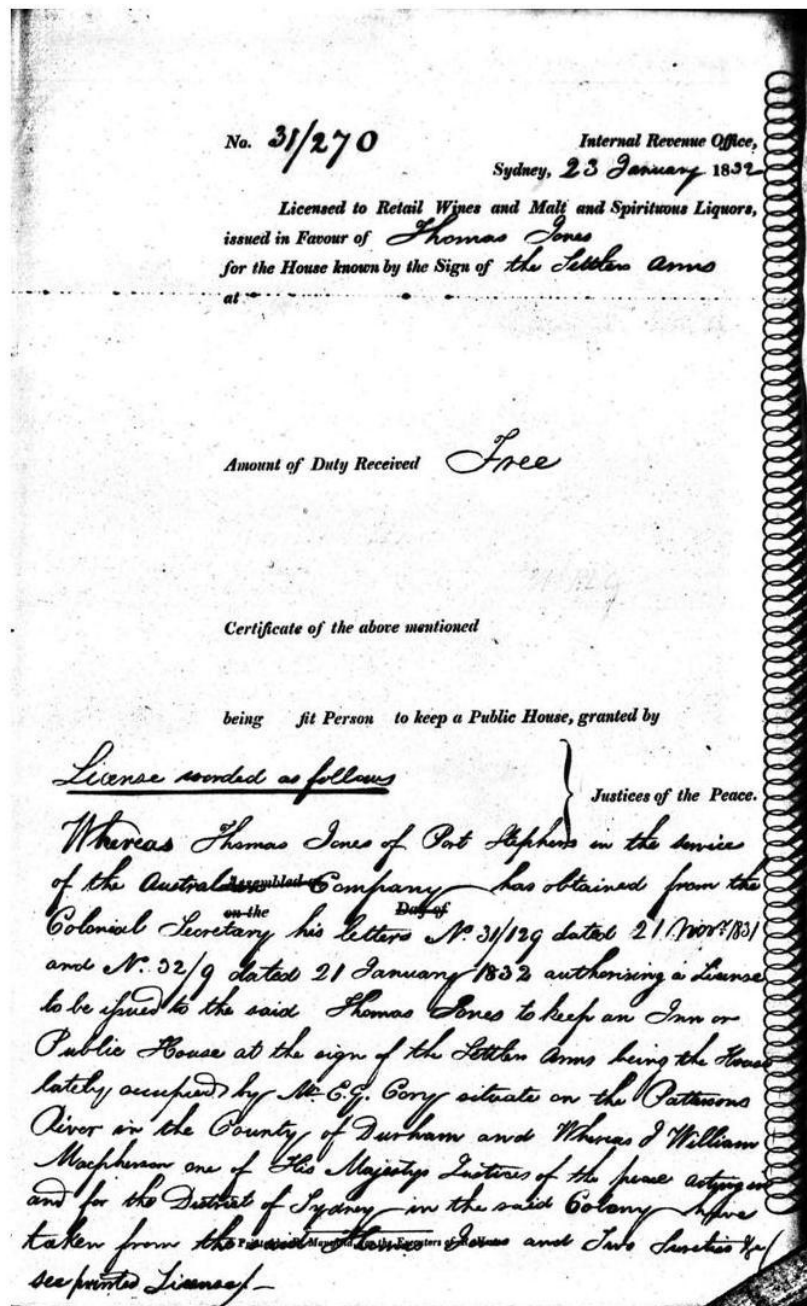 No. 31/270 Internal Revenue Office,
Sydney, 23 January 1832
Licensed to Retail Wines and Malt and Spirituous Liquors,
issued in Favour of Thomas Jones
for the House known by the Sign of the Settlers Arms
at
Amount of Duty Received Free
Certificate of the above mentioned
being fit Person to keep a Public House, granted by
License worded as follows
Justices of the Peace.
Whereas Thomas Jones of Port Stephens in the service
of the Austral Assembled Company has obtained from the
on the Day of
Colonial Secretary his letters No. 31/129 dated 21 Novr. 1831
and No. 32/9 dated 21 January 1832 authorising a License
to be issued to the said Thomas Jones to keep an Inn or
Public House at the sign of the Settlers Arms being the House
lately occupied by Mr. E.G. Cory situate on the Pattersons
River in the County of Durham and Whereas I William
Macpherson one of His Majestys Justices of the peace acting in
and for the District of Sydney in the said Colony have
taken from the said Thomas Jones and Two Sureties &c/
see printed License/-